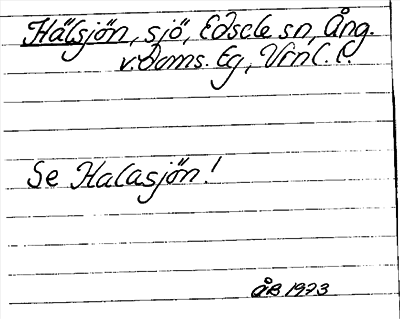 Hälsjön, sjö, Edsele sn, Ång.
v. Doms. Eg, Vrnl. l.
Se Halasjön!
ÅB 1973